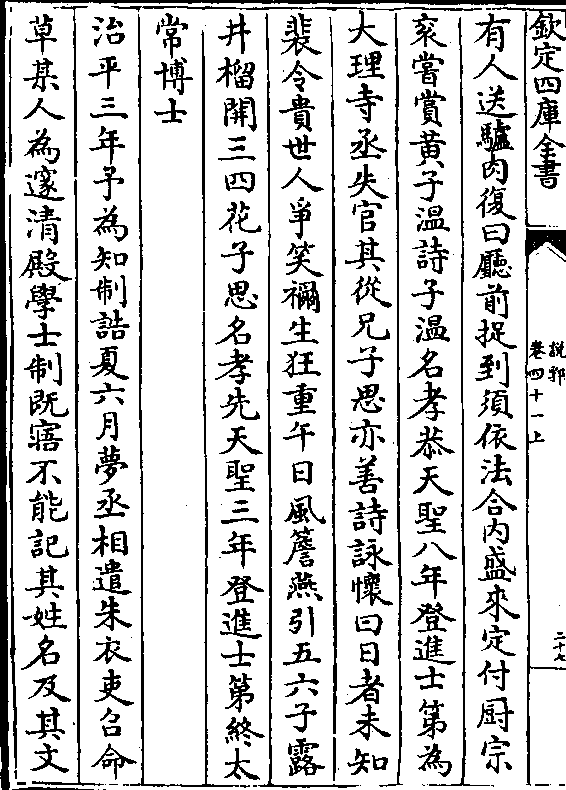 欽定四庫全書
說郛
卷四十一上
二十七
有人送驢肉復曰廳前捉到須依法合內盛來定付厨宗
衮嘗賞黃子溫詩子溫名孝恭天聖八年登進士第為
大理寺丞失官其從兄子思亦善詩詠懷曰日者未知
裴令貴世人爭笑禰生狂重午日風簷燕引五六子露
井榴開三四花子思名孝先天聖三年登進士第終太
常博士
治平三年予為知制誥夏六月夢丞相遣朱衣吏召命
草某人為邃清殿學士制既寤不能記其姓名及其文